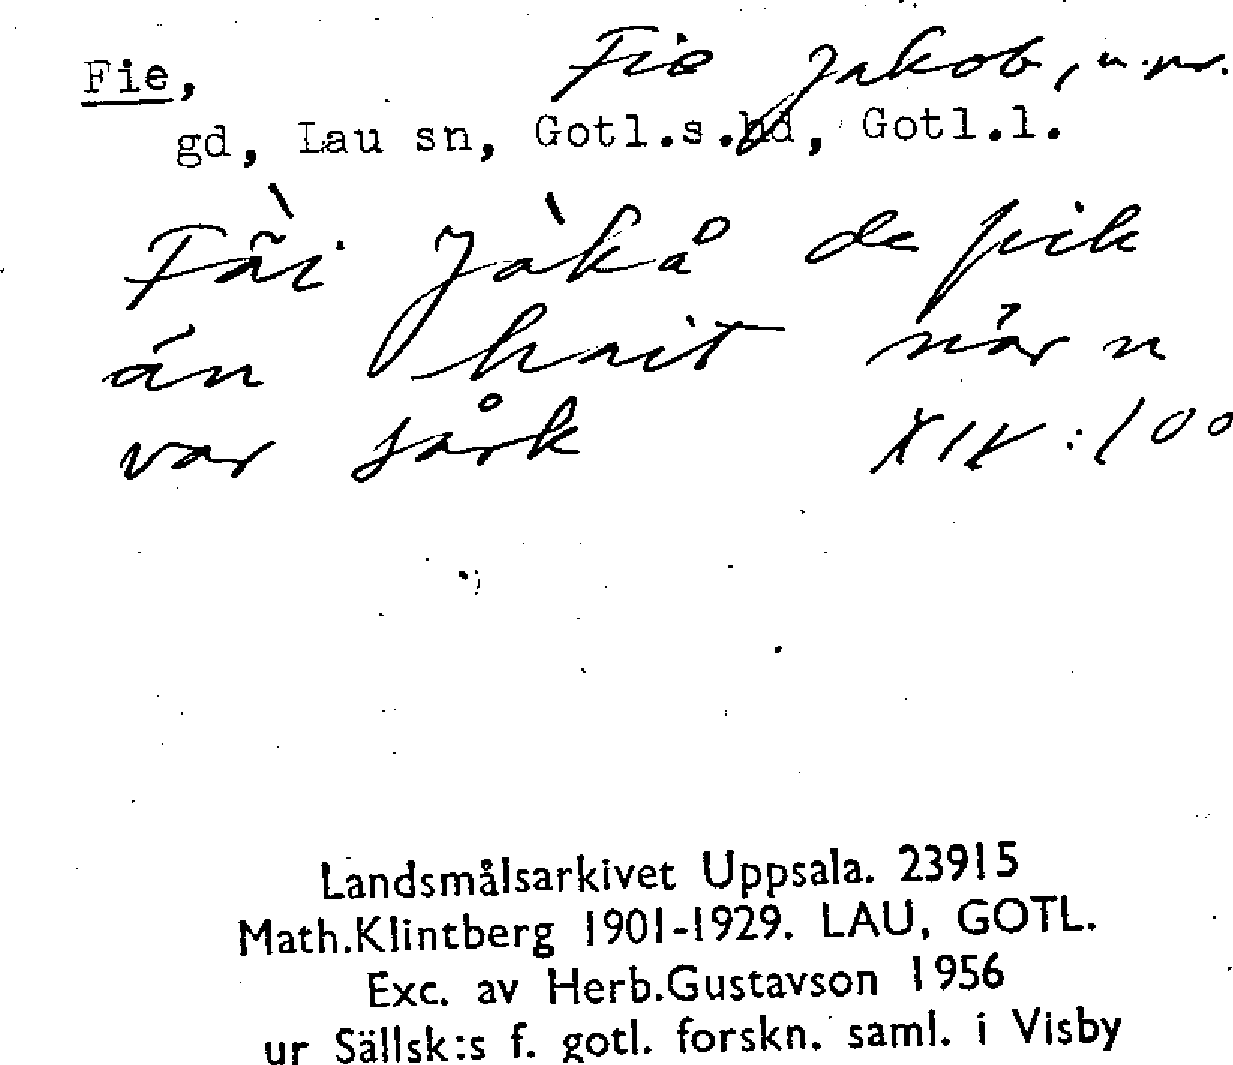 Fie, Fie Jakob, n.pr.
gd, Lau sn, Gotl.s.hd, Gotl.l.
Fäi Jàkå de fik
án hait när n
var sårk XIV:100
Landsmålsarkivet Uppsala. 23915
Math.Klintberg 1901-1929. LAU, GOTL.
Exc. av Herb.Gustavson 1956
ur Sällsk:s f. gotl. forskn. saml. i Visby